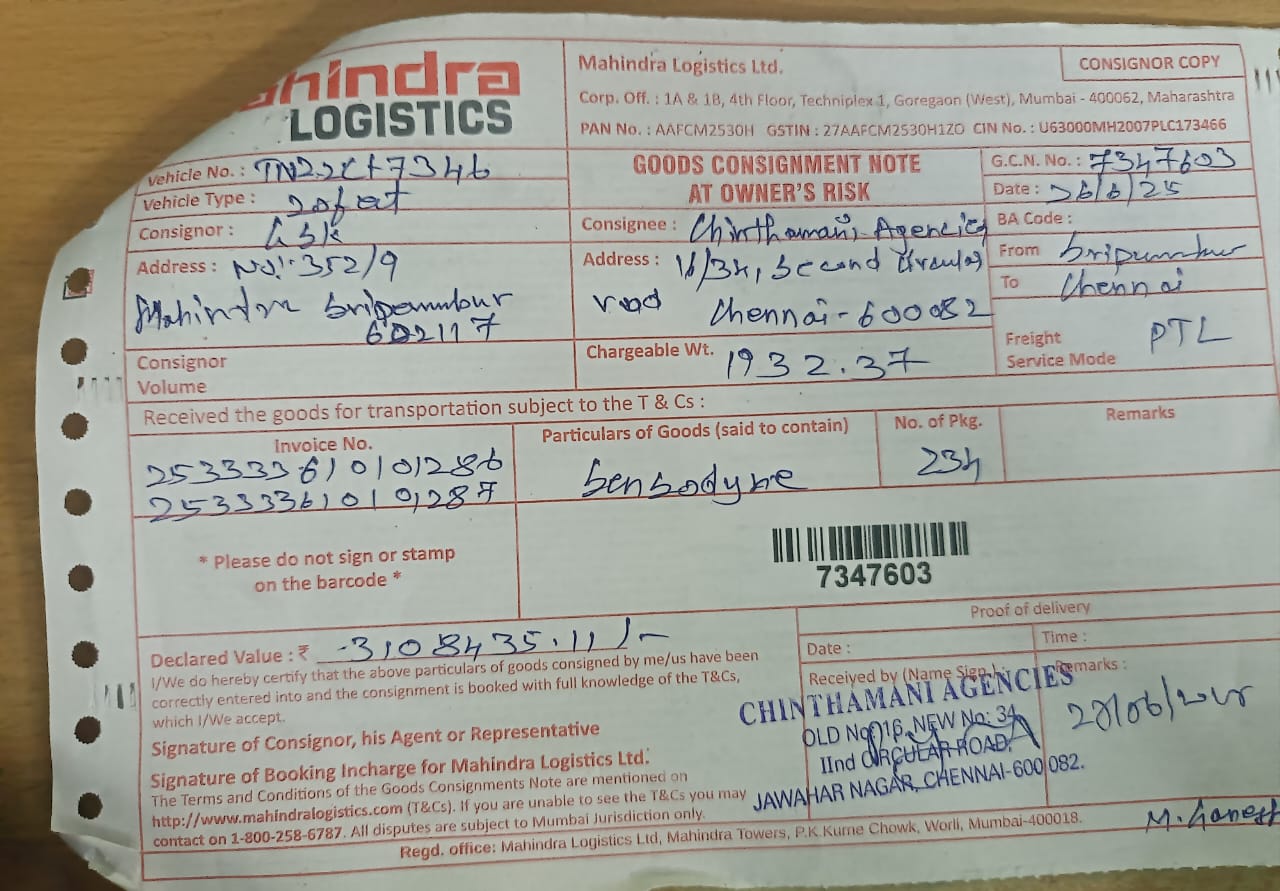 Mahindra
LOGISTICS
Mahindra Logistics Ltd.
CONSIGNOR COPY
Corp. Off. : 1A & 1B, 4th Floor, Techniplex 1, Goregaon (West), Mumbai - 400062, Maharashtra
PAN No. : AAFCM2530H GSTIN : 27AAFCM2530H1ZO CIN No. : U63000MH2007PLC173466
Vehicle No. : TN22CX7346
Vehicle Type : 20feet
Consignor : Gsk
Address : No:-352/9
Mahindra Sriperumbur
602117
Consignor
Volume
GOODS CONSIGNMENT NOTE
AT OWNER'S RISK
Consignee : Chinthamani Agencies
Address : 16/34, Second Circular
road Chennai-600082
Chargeable Wt. 1932.37
G.C.N. No. : 7347603
Date : 26/6/25
BA Code :
From Sripumbur
To Chennai
Freight
Service Mode PTL
Received the goods for transportation subject to the T & Cs :
Invoice No.
253333610101286
253333610101287
Particulars of Goods (said to contain)
Sensodyne
No. of Pkg.
234
Remarks
* Please do not sign or stamp
on the barcode *
7347603
Declared Value : ₹ 3108435.11/-
I/We do hereby certify that the above particulars of goods consigned by me/us have been
correctly entered into and the consignment is booked with full knowledge of the T&Cs,
which I/We accept.
Signature of Consignor, his Agent or Representative
Signature of Booking Incharge for Mahindra Logistics Ltd.
The Terms and Conditions of the Goods Consignments Note are mentioned on
http://www.mahindralogistics.com (T&Cs). If you are unable to see the T&Cs you may
contact on 1-800-258-6787. All disputes are subject to Mumbai Jurisdiction only.
Proof of delivery
Date :
Time :
Received by (Name Sign.) :
Remarks :
CHINTHAMANI AGENCIES
OLD No: 16, NEW No: 34,
IInd CIRCULAR ROAD,
JAWAHAR NAGAR, CHENNAI-600 082.
28/06/2025
M. Ganesh
Regd. office: Mahindra Logistics Ltd, Mahindra Towers, P.K.Kurne Chowk, Worli, Mumbai-400018.